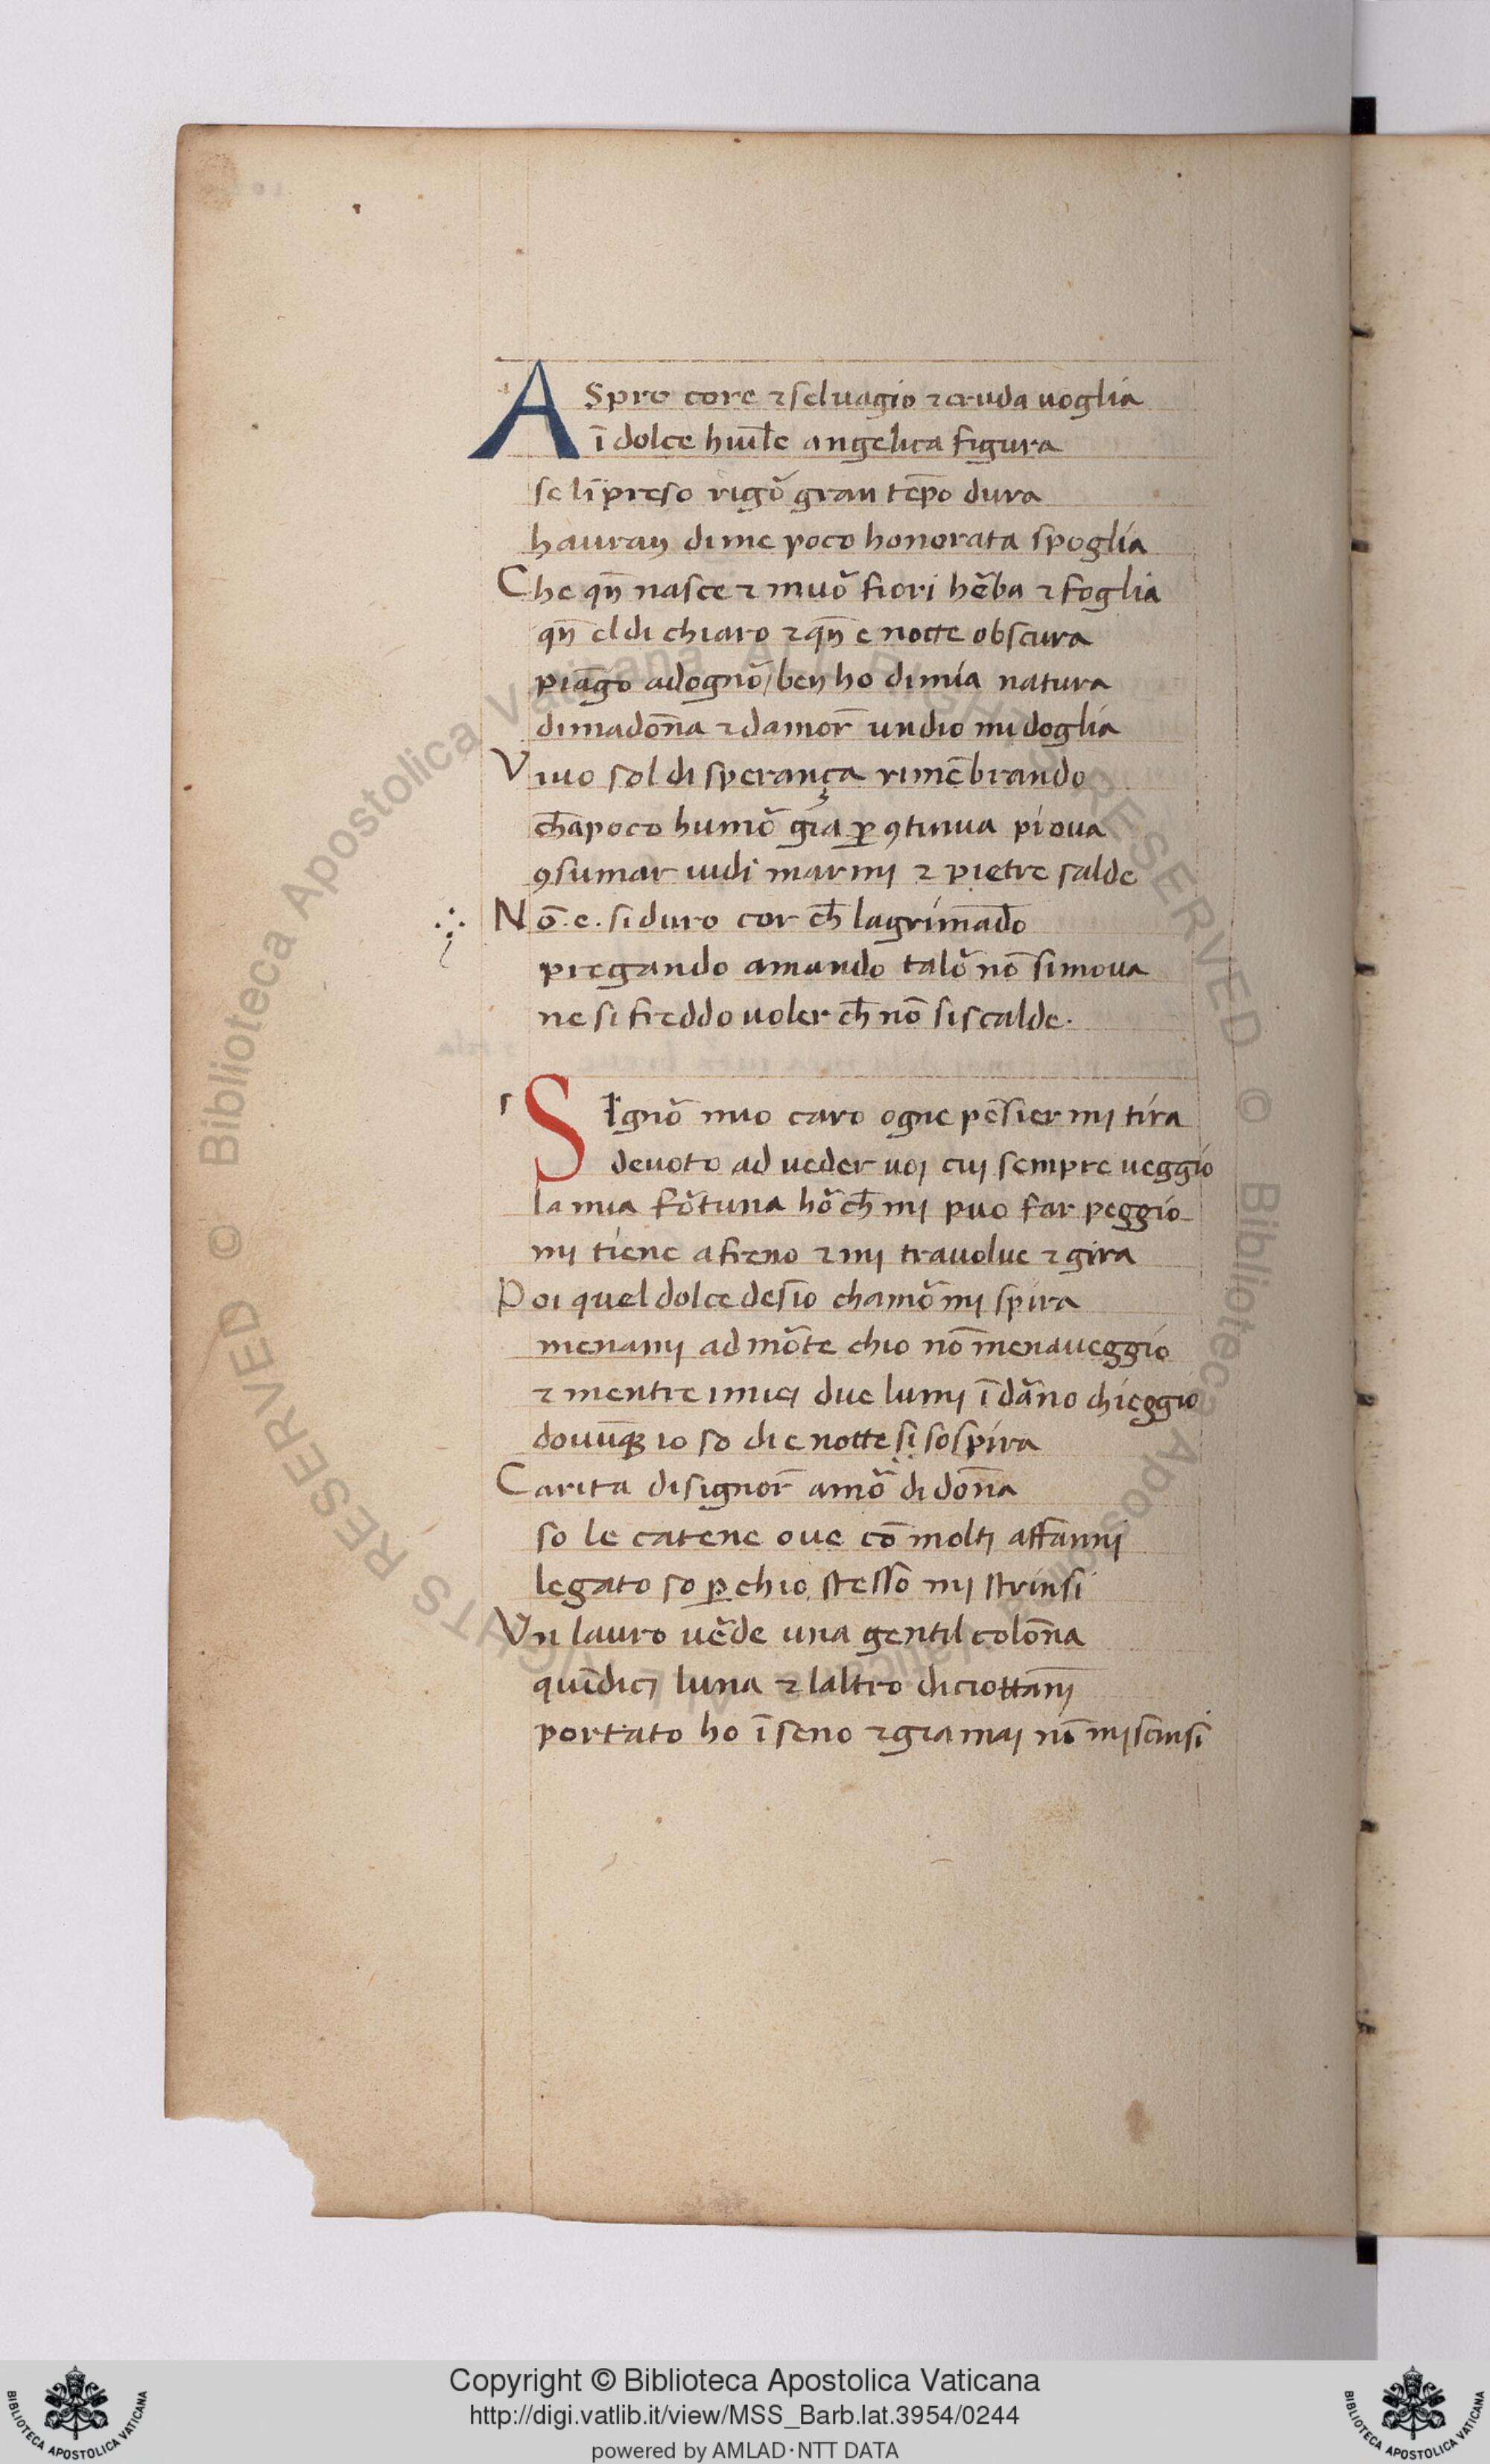 ASpro core ⁊ seluagio ⁊ cruda uoglia
ī dolce huīle angelica figura
se līpreso rigõ gran tēpo dura
hauran di me poco honorata spoglia
Che qn̄ nasce ⁊ muõ fiori hẽba ⁊ foglia
qn̄ el di chiaro ⁊ qn̄ e notte obscura
piāgo adognõ / ben ho di mia natura
di madon̄a ⁊ damor̄ undio mi doglia
Viuo sol di sperança rimēbrando
ch̄a poco humõ gia ꝑ ꝯtinua prioua
ꝯsumar uidi marmi ⁊ pietre salde
Nō .e. si duro cor ch̄ lagrimādo
pregando amando talõ nō simoua
ne si freddo uoler ch̄ nō siscalde.
SIgnõ mio caro ogne pēsier mi tira
deuoto ad ueder uoi cui sempre ueggio
la mia fõtuna hõ ch̄ mi puo far peggio
mi tiene a freno ⁊ mi trauolue ⁊ gira
Poi quel dolce desio chamõ mi spira
menami ad mõte chio nō menaueggio
⁊ mentre i miei due lumi ī dāno chieggio
douūqꝫ io so di e notte si sospira
Carita di signor̄ amõ di don̄a
so le catene oue cō molti affanni
legato so ꝑ chio stesso mi strinsi
Vn lauro uẽde una gentil colon̄a
quīdici luna ⁊ laltro diciottan̄i
portato ho ī seno ⁊ gia mai nō mi scinsi
© Biblioteca Apostolica Vaticana ALL RIGHTS RESERVED © Biblioteca Apostolica Vaticana ALL RIGHTS RESERVED
Copyright © Biblioteca Apostolica Vaticana
http://digi.vatlib.it/view/MSS_Barb.lat.3954/0244
powered by AMLAD·NTT DATA
BIBLIOTECA APOSTOLICA VATICANA
BIBLIOTECA APOSTOLICA VATICANA